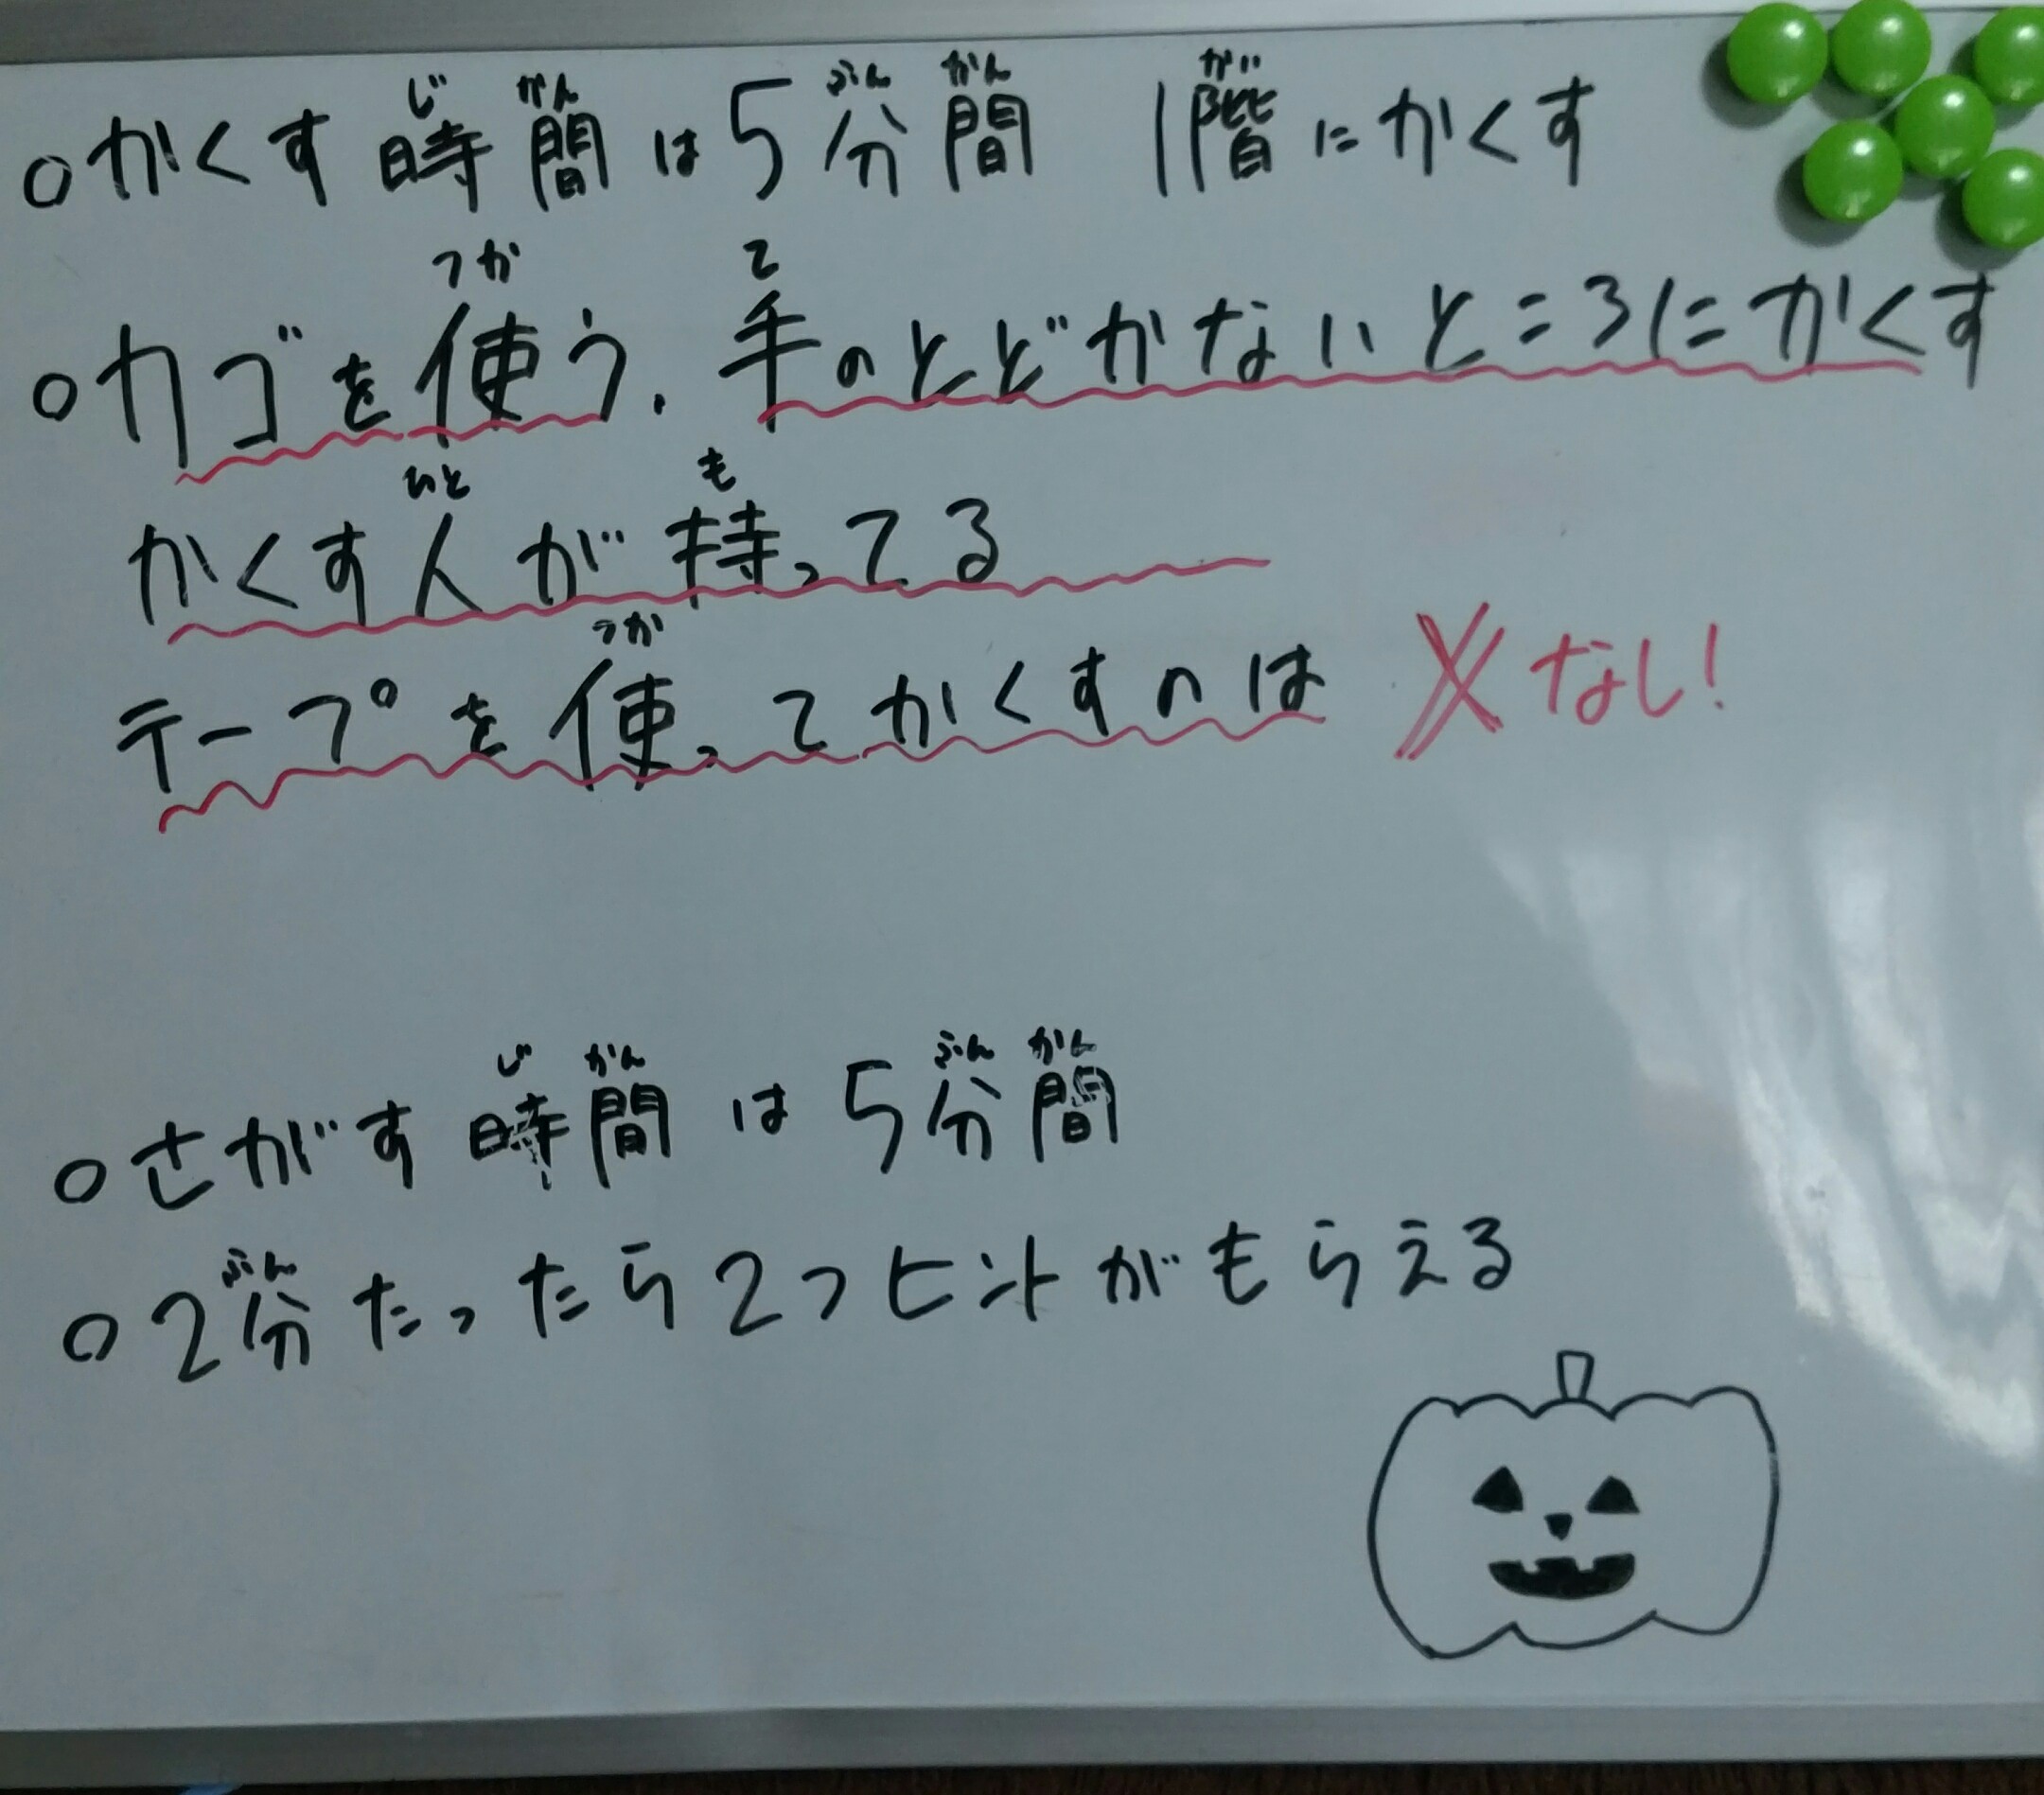 ○かくす時間は5分間 1階にかくす
じ かん ぶん かん かい
○カゴを使う.手のとどかないところにかくす
つか て
かくす人が持ってる
ひと も
テープを使ってかくすのは ✕なし!
つか
○さがす時間は5分間
じ かん ぶん かん
○2分たったら2つヒントがもらえる
ぶん